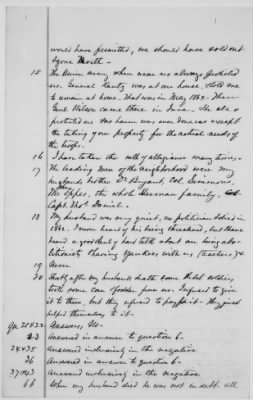 would have permitted, we should have sold out
& gone North -
15 The Union army when near us always protected
us. General Kautz was at our house & told me
to remain at home. That was in May 1864. Then
Genl Wilson came there in June. He also
protected us. No harm was ever done us except
the taking your property for the actual needs of
the troops.
16 I have taken the oath of allegiance many times.
17 The leading men of the neighborhood were my
husbands brother Dr Bryant, Col. Simmons,
Mr Epes, the whole Sherman family,
Capt. Thos. Daniel.
18 My husband was very quiet, no politician & died in
1862. I never heard of his being threatened, but I have
heard a good deal of hard talk about our being abo-
litionists & having Yankees with us (teachers) &c.
19 None
20 That after my husbands death some Rebel soldiers,
took some corn & fodder from us. I refused to give
it to them, but they refused to pay for it - they just
helped themselves to it -
Qu 21 & 22 Answers, No -
23 Answered in answer to question 6 -
24 & 35 Answered inclusively in the negative
36 Answered in answer to question 6 -
37 & 43 Answered inclusively in the negative.
66 When my husband died he was not in debt all